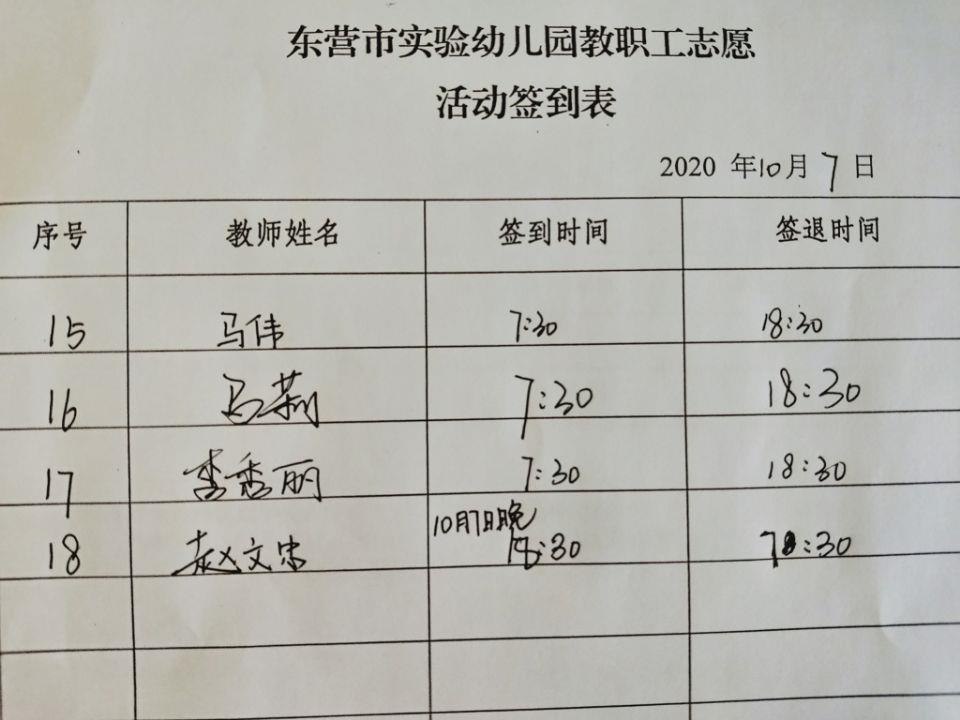 东营市实验幼儿园教职工志愿
活动签到表
2020 年10月7日
序号 教师姓名 签到时间 签退时间
15 马伟 7:30 18:30
16 马莉 7:30 18:30
17 李秀丽 7:30 18:30
10月7日晚
18 赵文忠 18:30 7:30